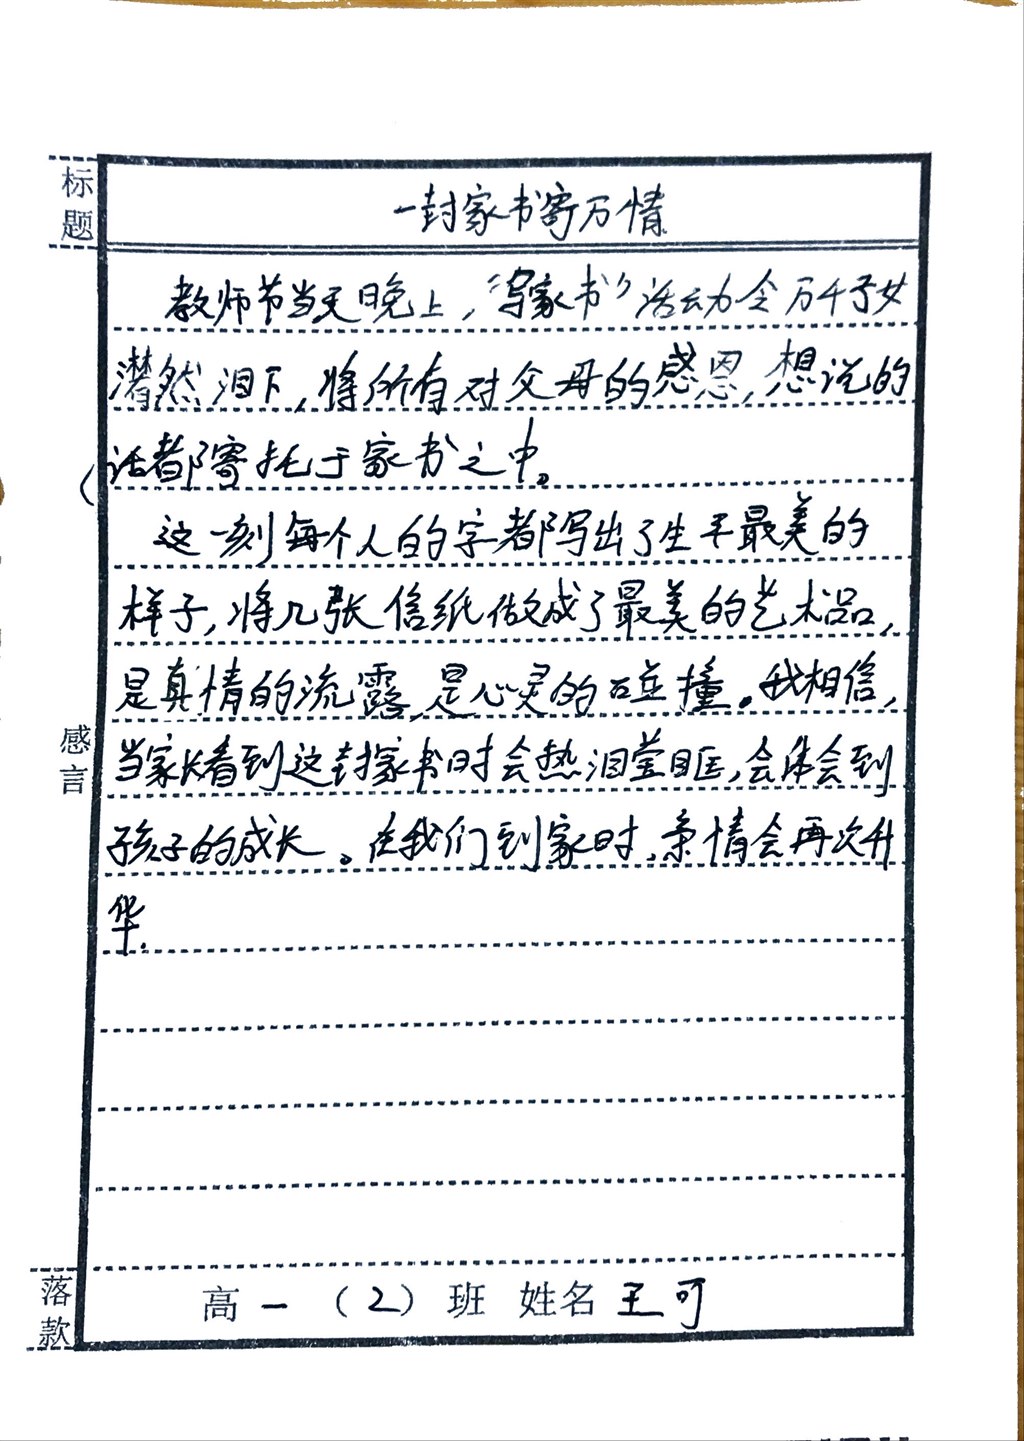 标题
一封家书寄万情
教师节当天晚上，“写家书”活动令万千子女
潸然泪下，将所有对父母的感恩，想说的
话都寄托于家书之中。
这一刻每个人的字都写出了生平最美的
样子，将几张信纸做成了最美的艺术品，
是真情的流露，是心灵的碰撞。我相信，
感言
当家长看到这封家书时会热泪莹眶，会体会到
孩子的成长。在我们到家时，亲情会再次升
华.
落款
高一（2）班 姓名王可